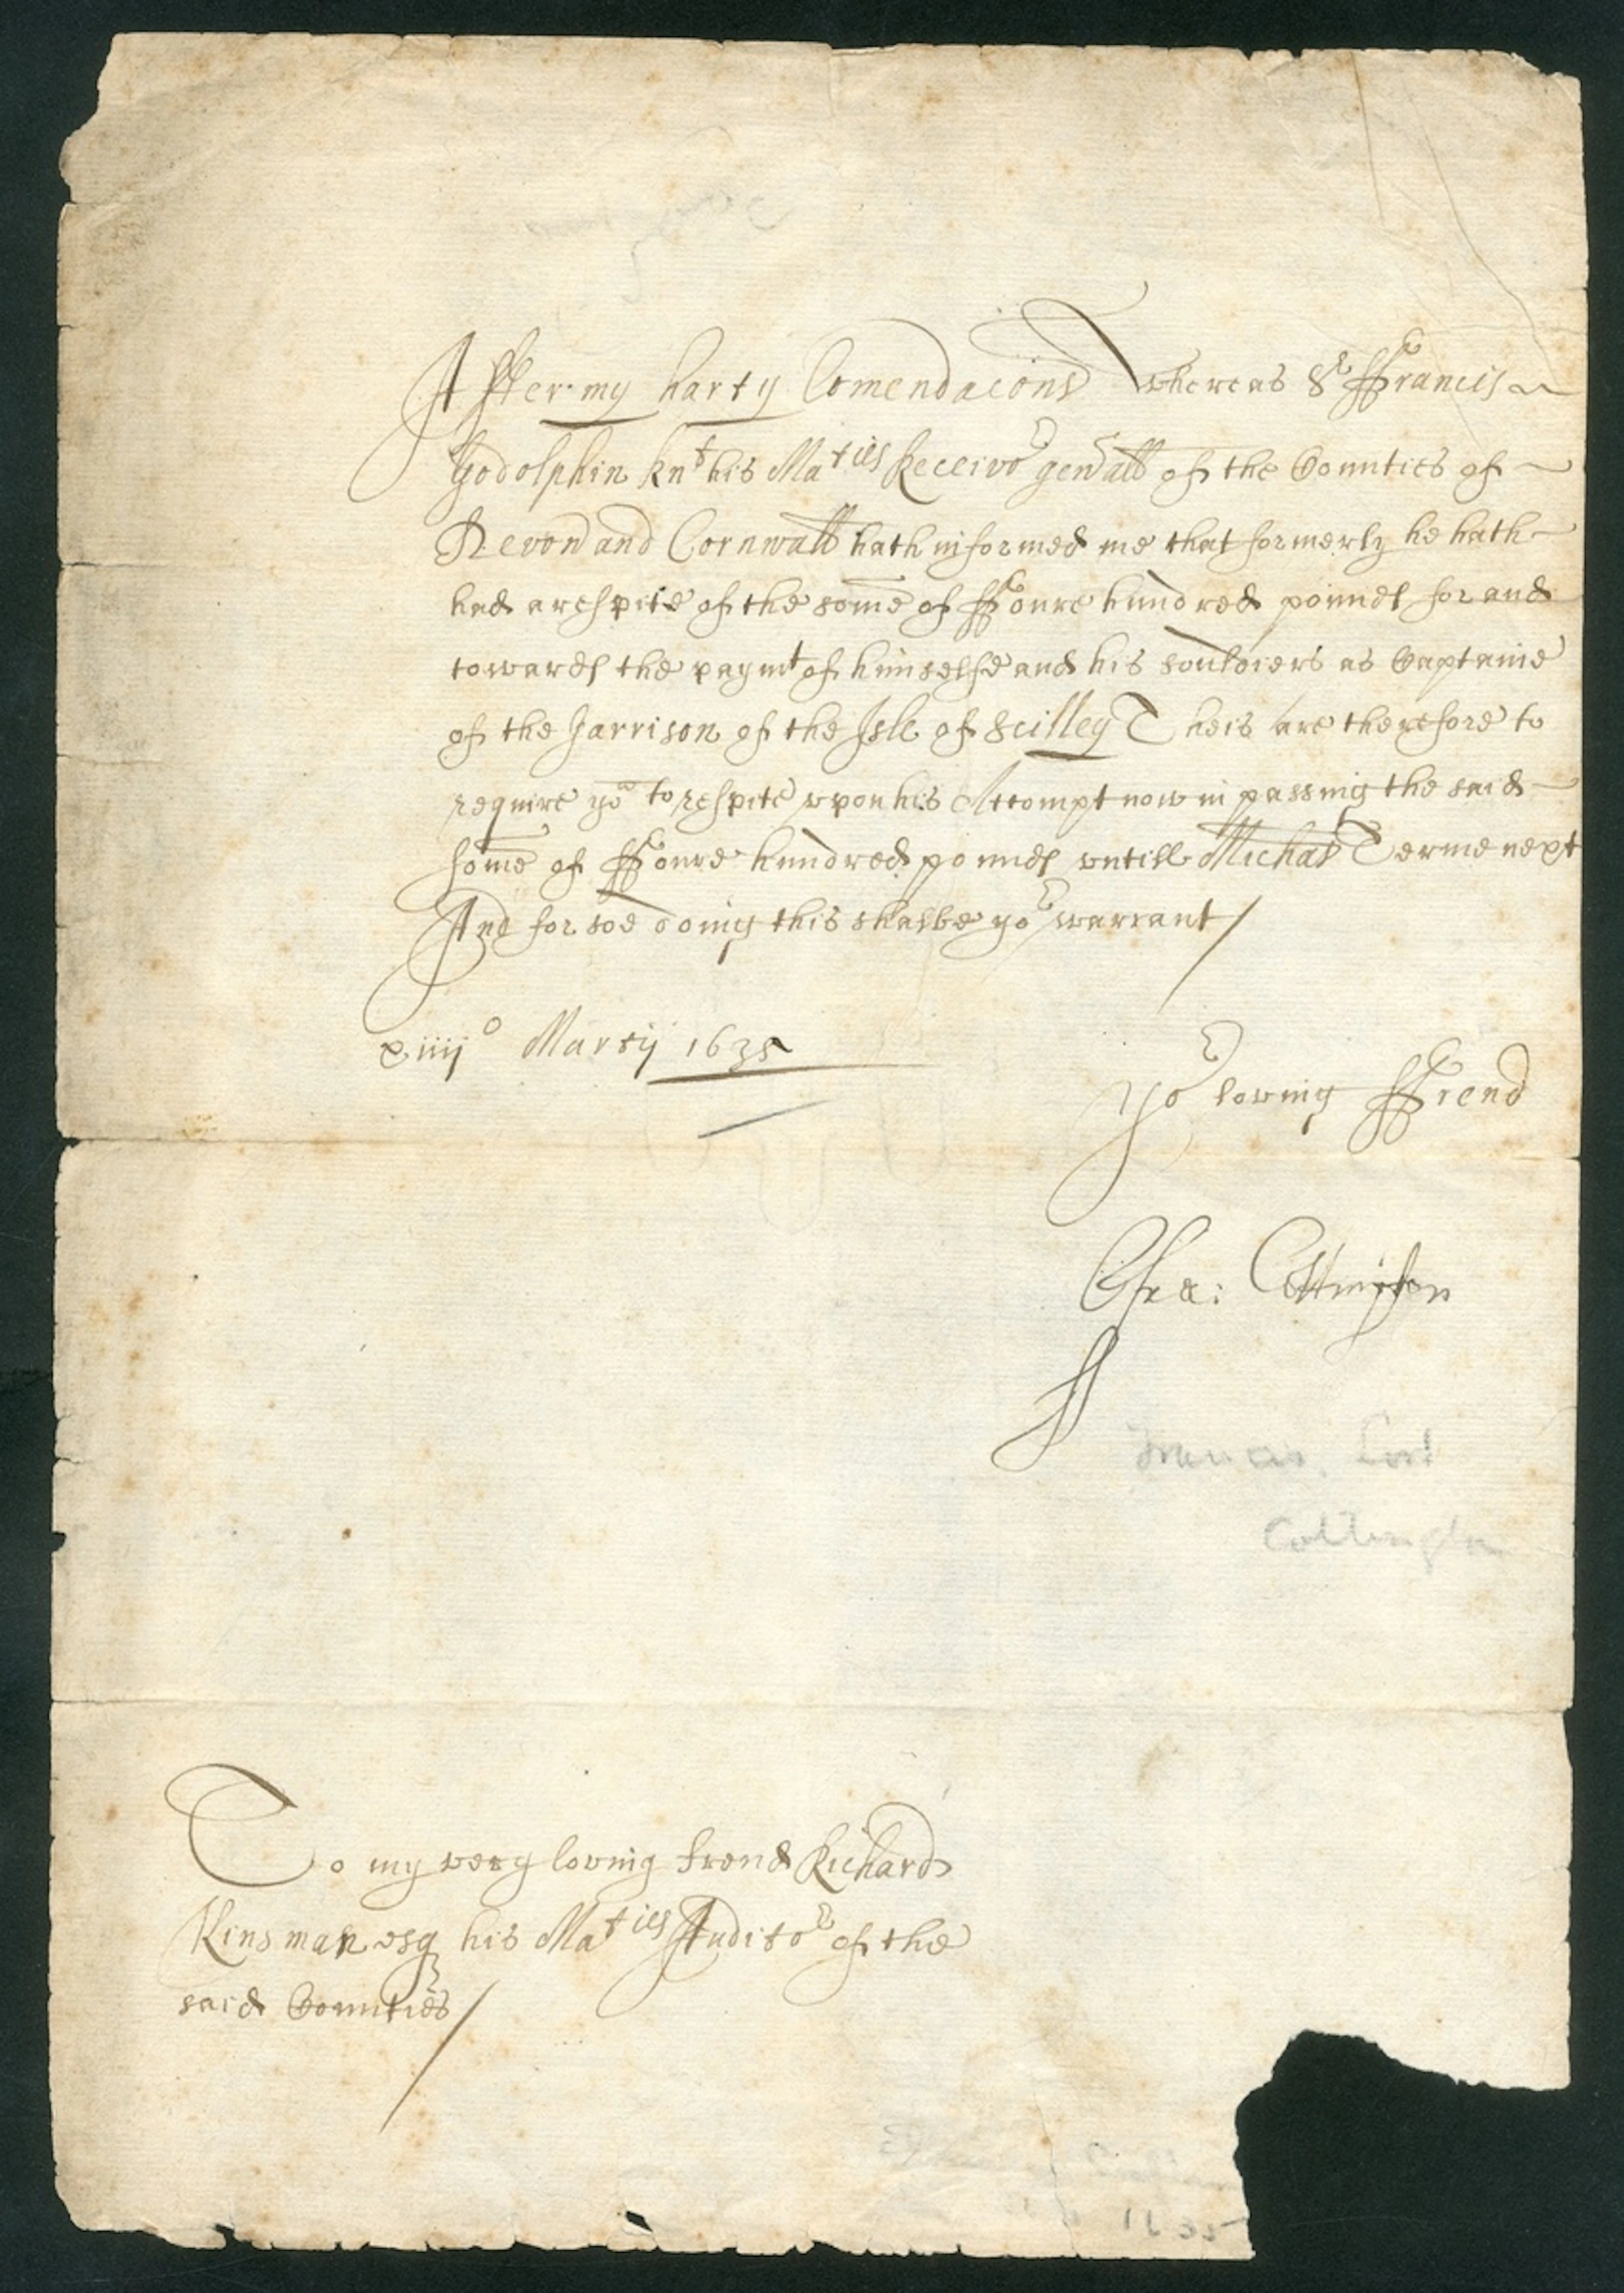 After my harty Comendacons Whereas Sr ffrancis
Godolphin knt his Maties Receivor genrall of the Counties of
Devon and Cornwall hath informed me that formerly he hath
had a respite of the some of ffoure hundred pounds for and
towards the paymt of himselfe and his souldiers as Captaine
of the Garrison of the Isle of Scilley Theis are therefore to
require yo to respite upon his Accompt now in passing the said
some of ffoure hundred pounds untill Michas Terme next
And for soe doing this shalbe yor warrant /
xiiijo Martij 1635
yor loving ffrend
ffra: Cottington
Francis Lord
Cottington
To my very loving frend Richard
Kinsman esq his Maties Auditor of the
said Counties /